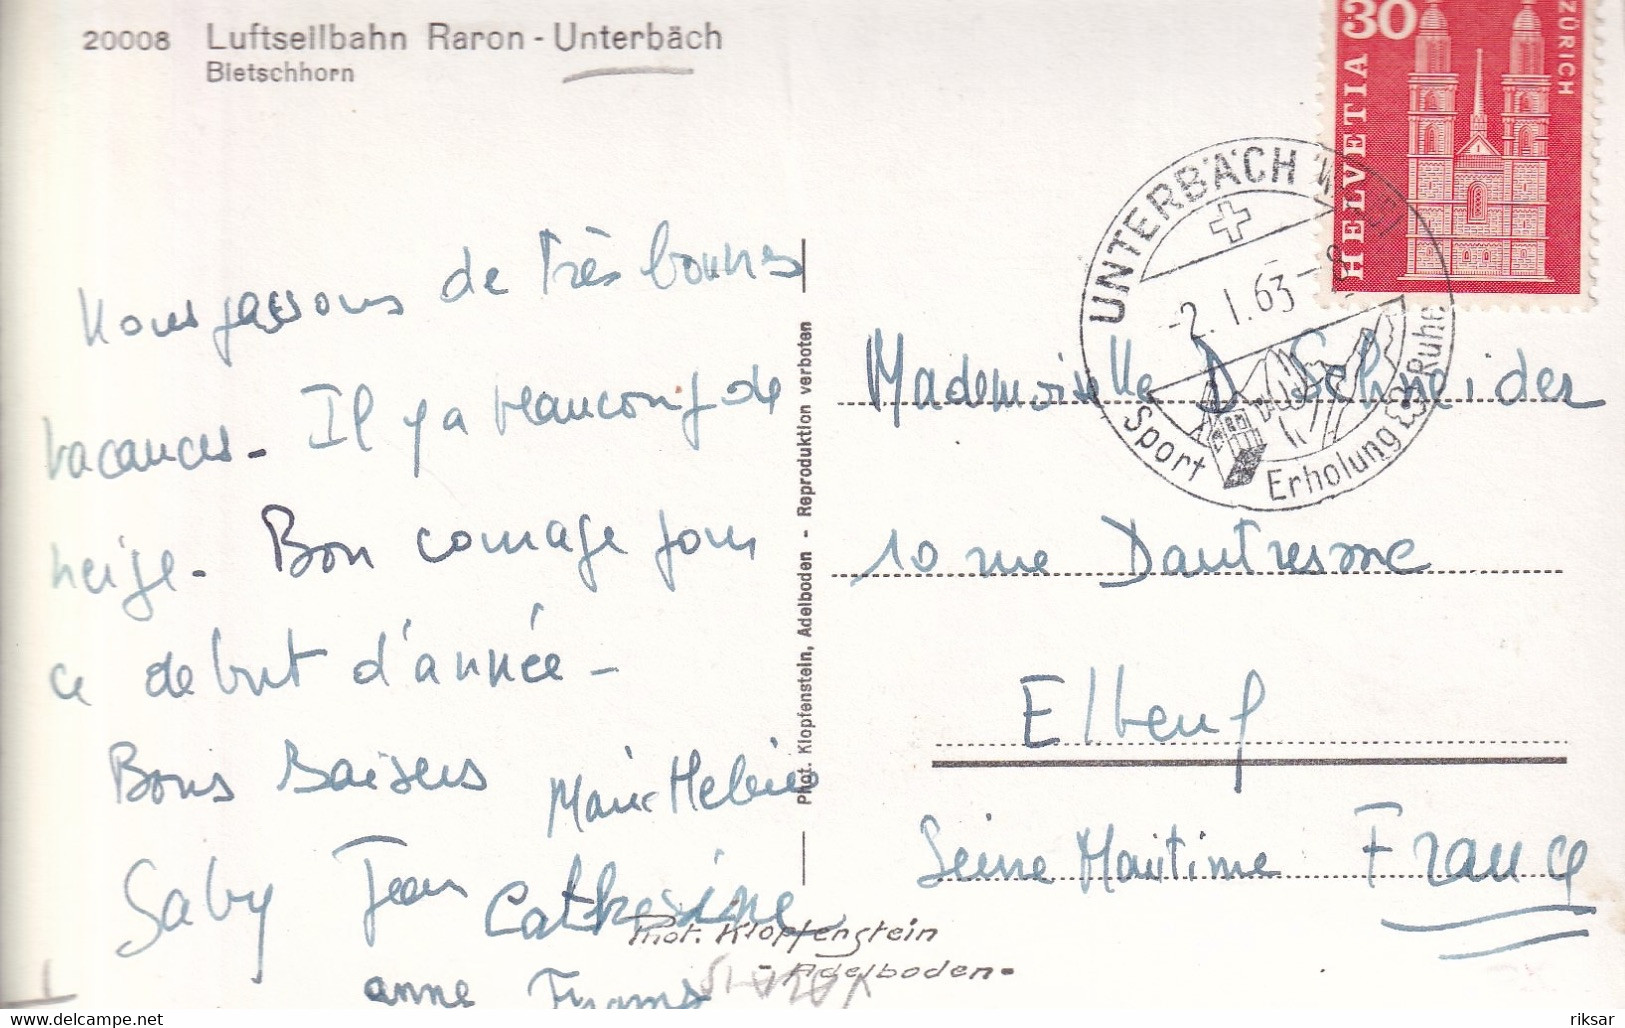 20008 Luftseilbahn Raron - Unterbäch
Bietschhorn
HELVETIA
30
ZÜRICH
UNTERBÄCH
-2.1.63-8
Sport Erholung Ruhe
Nous passons de très bonnes
vacances. Il y a beaucoup de
neige. Bon courage pour
ce debut d'année -
Bons Baisers Marie Helène
Gaby Jean Catherine
anne
Phot. Klopfenstein, Adelboden - Reproduktion verboten
Mademoiselle D Schneider
10 rue Dautresme
Elbeuf
Seine Maritime France
Phot. Klopfenstein
- Adelboden -
delcampe.net
riksar